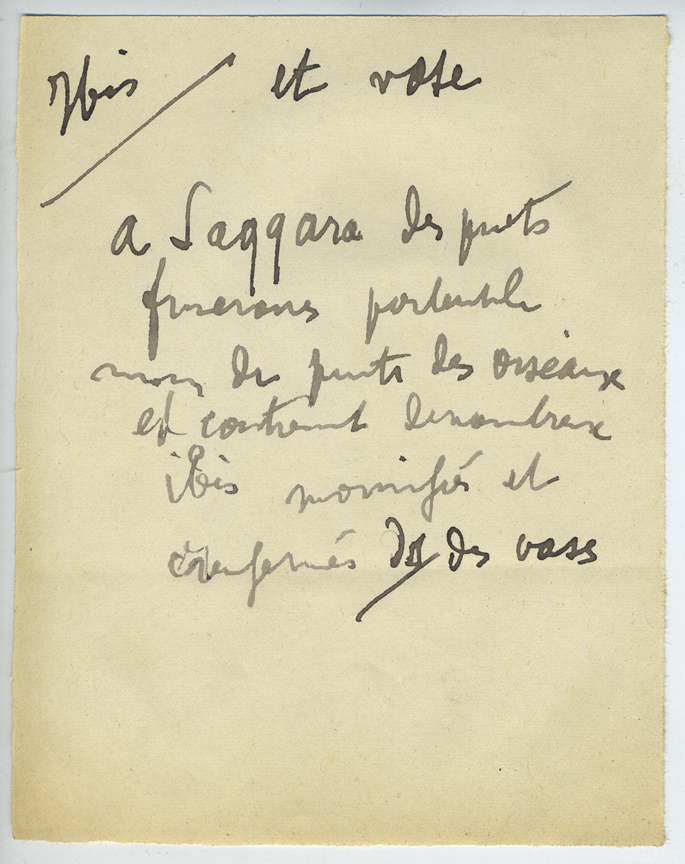 Ibis et vase
a Saqqara des puits
funeraires portent le
nom de puits des oiseaux
et contiennent de nombreux
ibis momifiés et
enfermés ds des vases